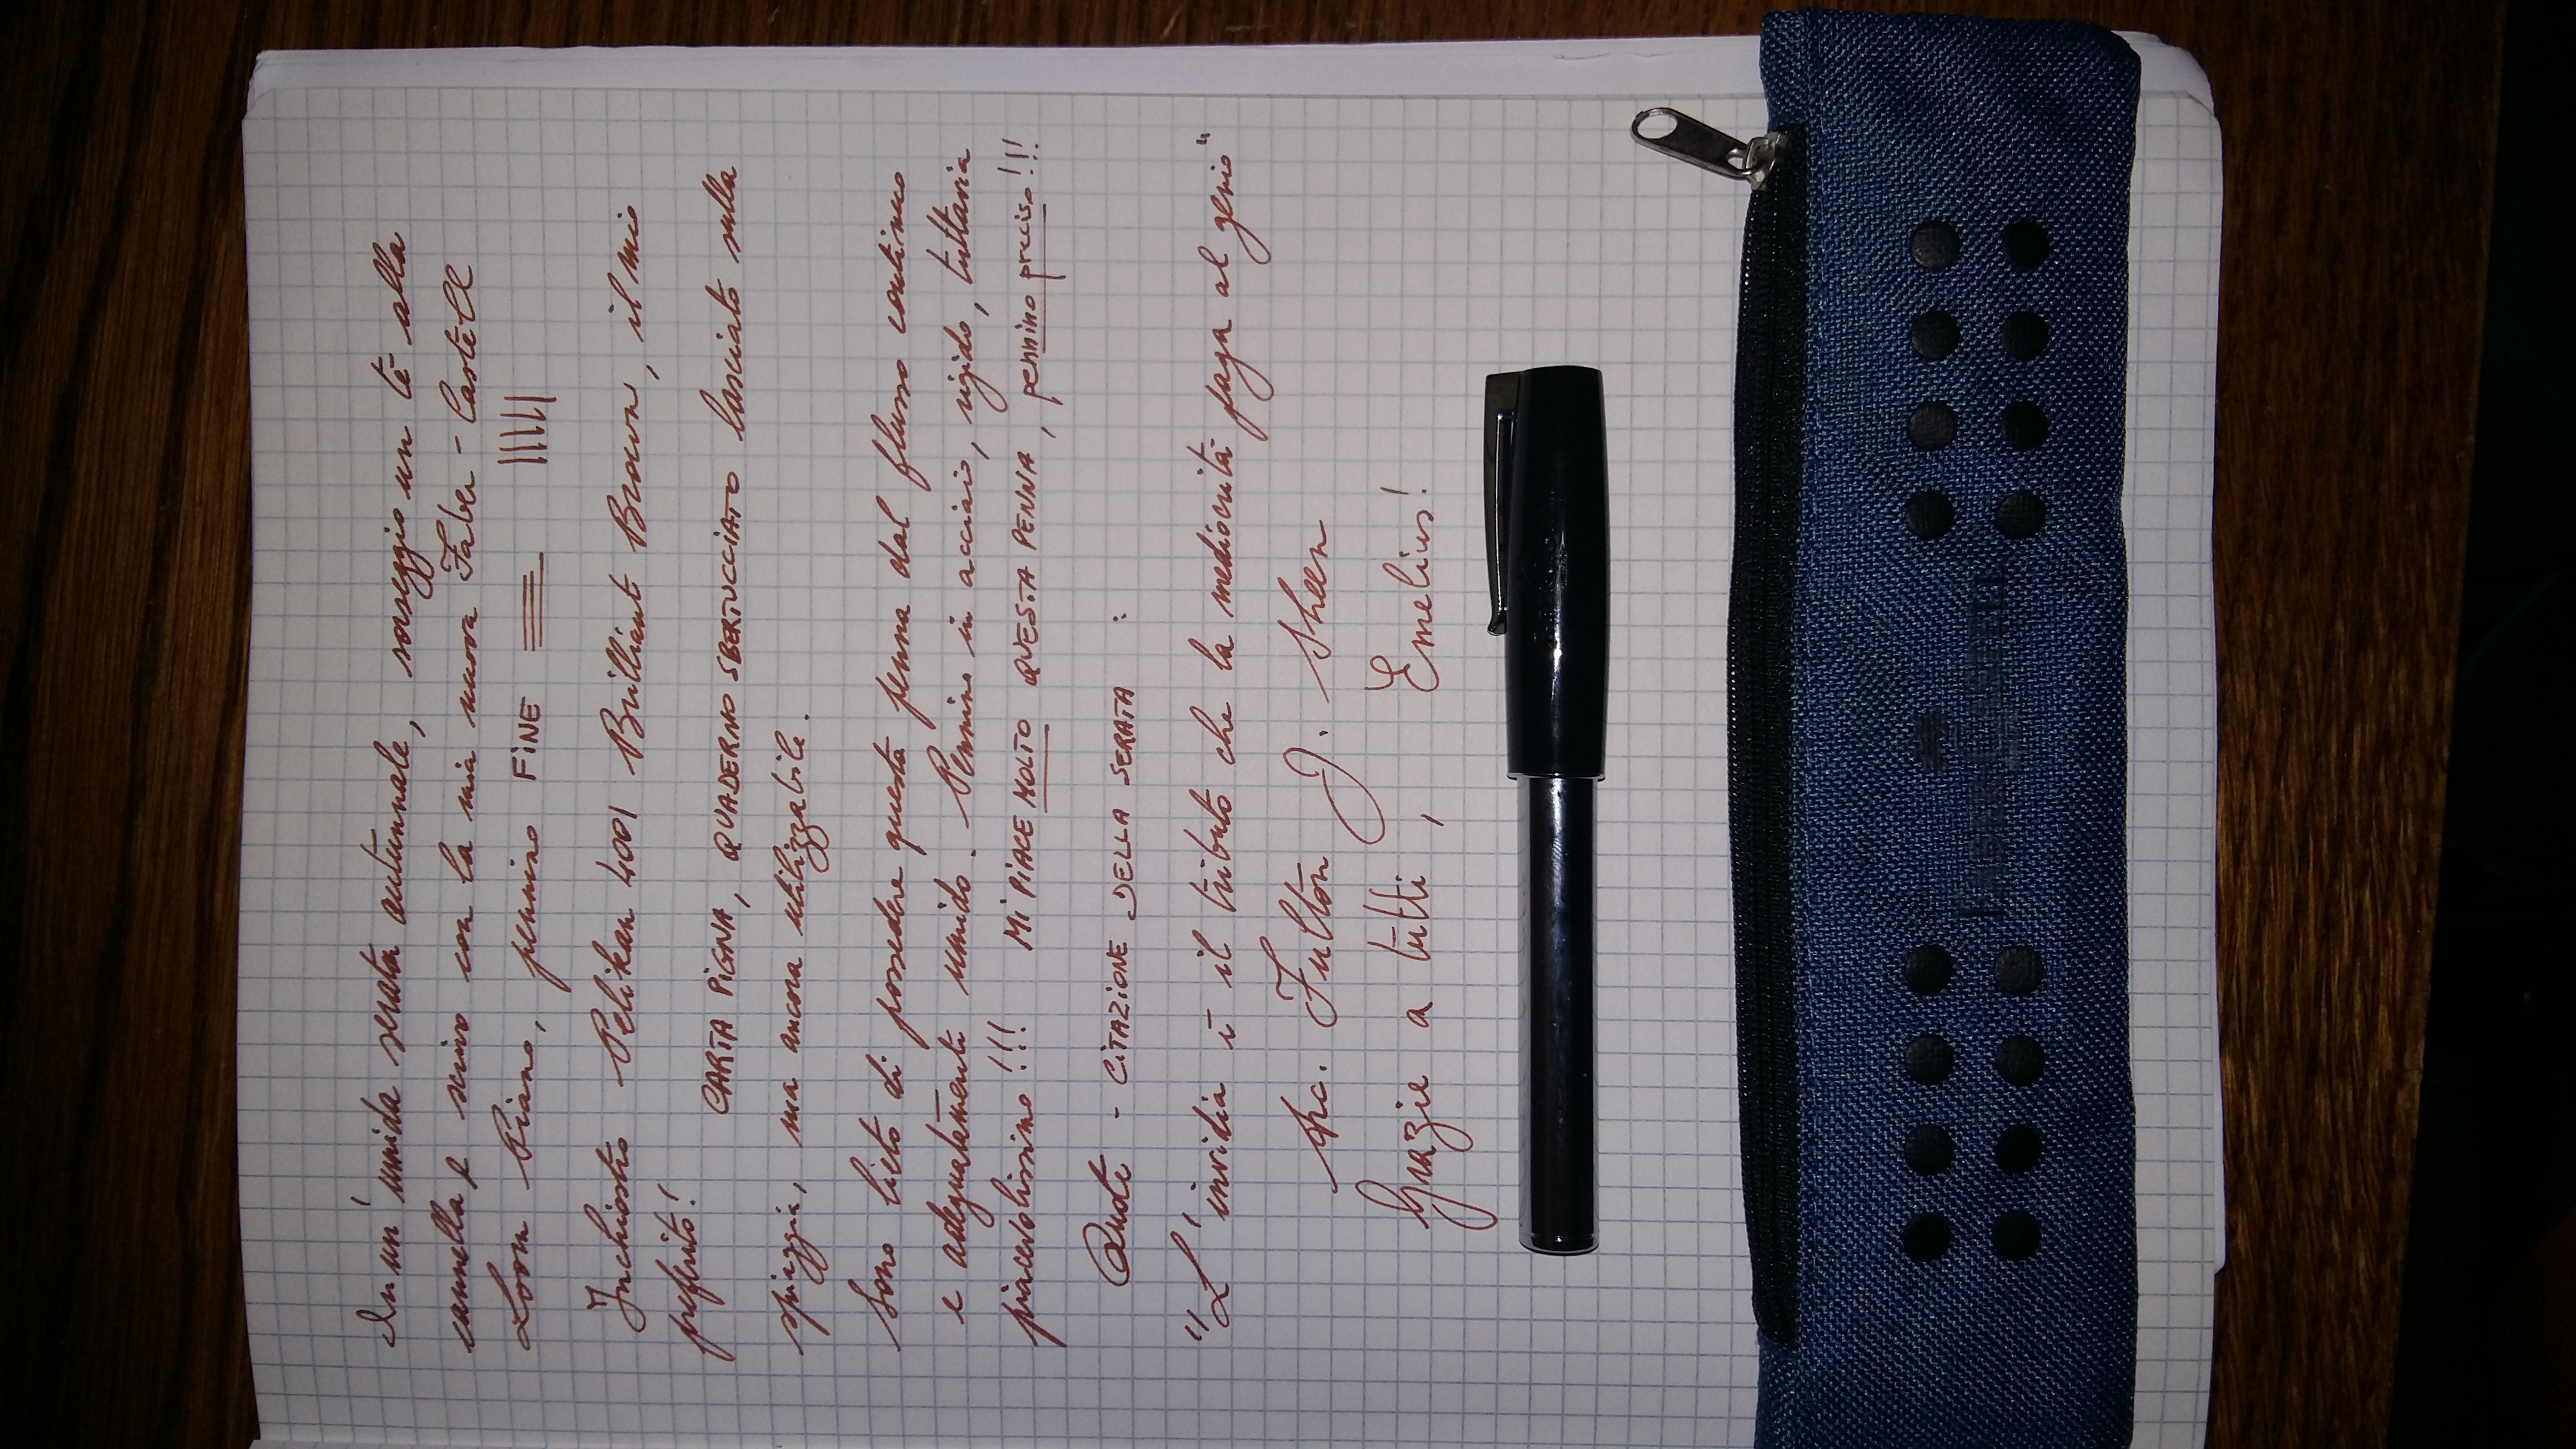 In un'umida serata autunnale, sorseggio un tè alla
cannella e scrivo con la mia nuova Faber-Castell
Loom Piano, pennino FINE
Inchiostro Pelikan 4001 Brilliant Brown, il mio
preferito!
CARTA PIGNA, QUADERNO SBERTUCCIATO lasciato sulla
spiaggia, ma ancora utilizzabile.
Sono lieto di possedere questa penna dal flusso continuo
e adeguatamente umido. Pennino in acciaio, rigido, tuttavia
piacevolissimo!!! Mi PIACE MOLTO QUESTA PENNA, pennino preciso!!!
Quote - CITAZIONE DELLA SERATA:
"L'invidia è il tributo che la mediocrità paga al genio"
Spc. Fulton J. Sheen
Grazie a tutti, Emelius!
FABER-CASTELL